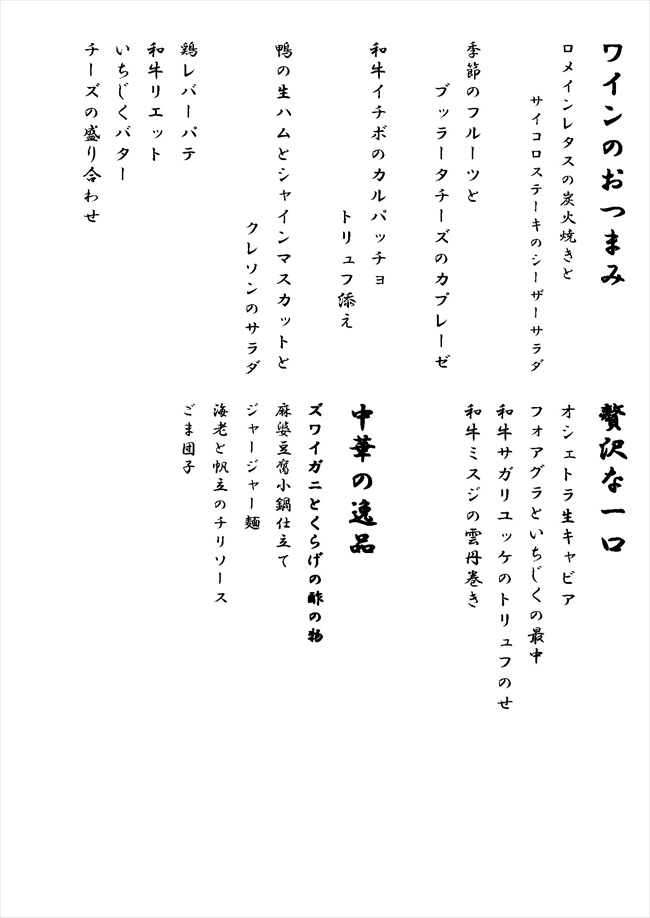 ワインのおつまみ
ロメインレタスの炭火焼きと
サイコロステーキのシーザーサラダ
季節のフルーツと
ブッラータチーズのカプレーゼ
和牛イチボのカルパッチョ
トリュフ添え
鴨の生ハムとシャインマスカットと
クレソンのサラダ
鶏レバーパテ
和牛リエット
いちじくバター
チーズの盛り合わせ
贅沢な一口
オシェトラ生キャビア
フォアグラといちじくの最中
和牛サガリユッケのトリュフのせ
和牛ミスジの雲丹巻き
中華の逸品
ズワイガニとくらげの酢の物
麻婆豆腐小鍋仕立て
ジャージャー麺
海老と帆立のチリソース
ごま団子